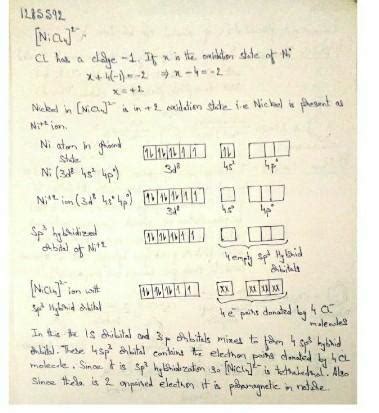 1285592
[NiCl4]2-
CL has a charge -1. If x is the oxidation state of Ni
x + 4(-1) = -2 ⇒ x - 4 = -2
x = +2
Nickel in [NiCl4]2- is in +2 oxidation state i.e Nickel is present as
Ni+2 ion.
Ni atom in ground 1↓ 1↓ 1↓ 1 1 1↓
State 3d8 4s2 4p0
Ni (3d8 4s2 4p0)
Ni+2 ion (3d8 4s0 4p0) 1↓ 1↓ 1↓ 1 1
3d8 4s0 4p0
Sp3 hybridized 1↓ 1↓ 1↓ 1 1
orbital of Ni+2
4 empty sp3 Hybrid
orbitals
[NiCl4]2- ion with 1↓ 1↓ 1↓ 1 1 xx xx xx xx
sp3 Hybrid orbital
4 e- pairs donated by 4 Cl-
molecules
In this the 1S orbital and 3p orbitals mixes to form 4 sp3 hybrid
orbital. These 4 sp3 orbital contains the electron pairs donated by 4 CL
molecule. Since it is sp3 hybridization so [NiCl4]2- is tetrahedral. Also
since there is 2 unpaired electron it is paramagnetic in nature.